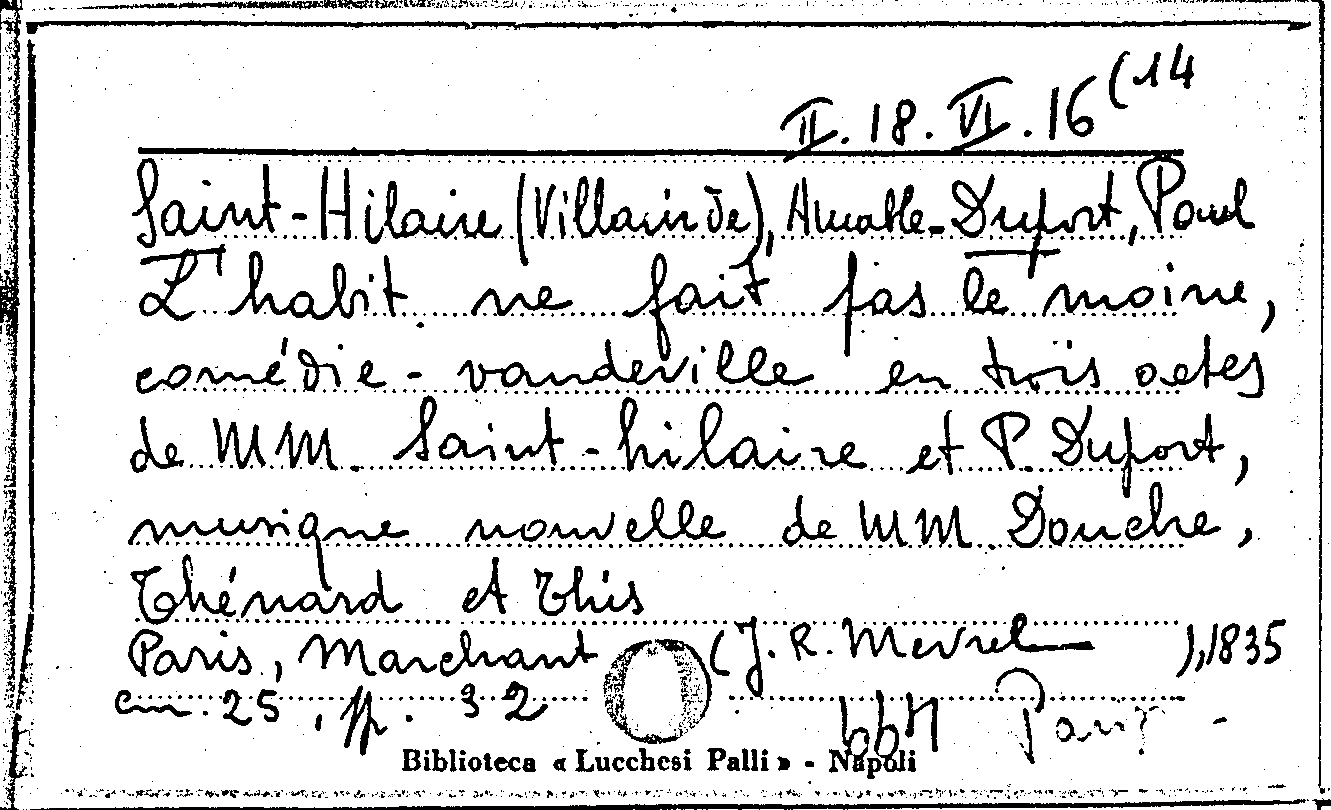 II. 18. VI. 16 (14
Saint-Hilaire (Villain de), Amable-Dufort, Paul
L'habit ne fait pas le moine,
comédie-vaudeville en trois actes
de MM. Saint-hilaire et P. Dufort,
musique nouvelle de MM. Douche,
Thénard et This
Paris, Marchant (J. R. Mevrel ), 1835
cm. 25, pp. 32
Biblioteca « Lucchesi Palli » - Napoli